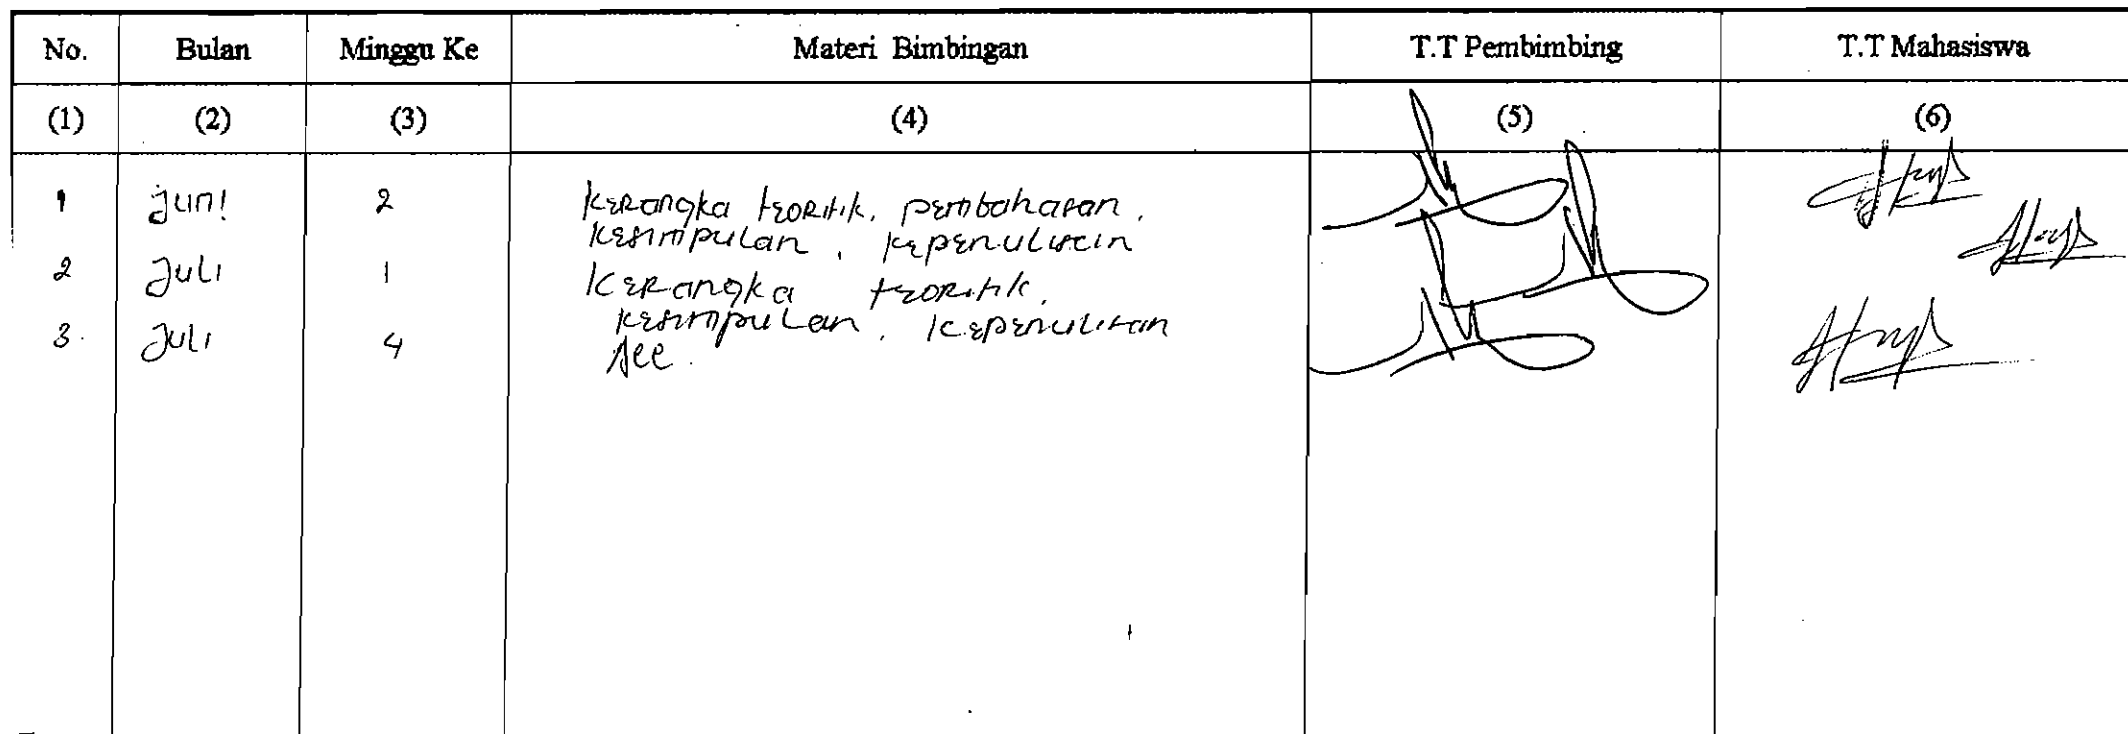 No. Bulan Minggu Ke Materi Bimbingan T.T Pembimbing T.T Mahasiswa
(1) (2) (3) (4) (5) (6)
1 Juni 2 Kerangka teoritik, pembahasan,
kesimpulan, kepenulisan
2 Juli 1 Kerangka teoritik,
kesimpulan, kepenulisan
3. Juli 4 Acc.